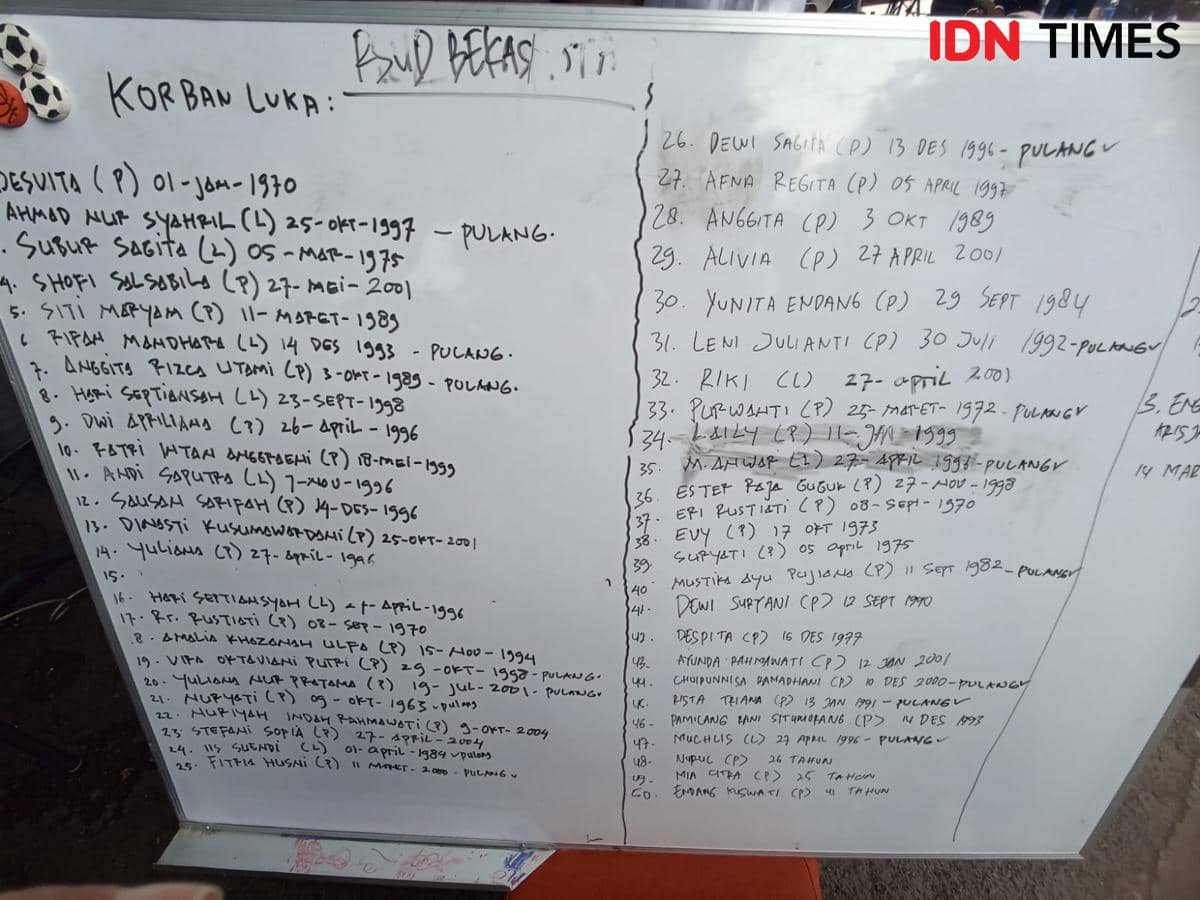 IDN TIMES
RSUD BEKASI
KORBAN LUKA:
DESVITA (P) 01-JAN-1970
AHMAD NUR SYAHRIL (L) 25-OKT-1997 - PULANG.
. SUBUR SAGITA (L) 05-MAR-1975
4. SHOFI SALSABILA (P) 27-MEI-2001
5. SITI MARYAM (P) 11-MARET-1989
6 RIFAN MANDHARA (L) 14 DES 1993 - PULANG.
7. ANGGITA RIZCA UTAMI (P) 3-OKT-1989 - PULANG.
8. HARI SEPTIANSAH (L) 23-SEPT-1998
9. DWI APRILIANA (P) 26-APRIL-1996
10. RATRI INTAN ANGGRAENI (P) 18-MEI-1999
11. ANDI SAPUTRA (L) 7-NOV-1996
12. SAUSAN SARIFAH (P) 14-DES-1996
13. DINASTI KUSUMAWARDANI (P) 25-OKT-2001
14. YULIANA (P) 27-APRIL-1996
15.
16. HARI SEPTIANSYAH (L) APRIL-1996
17. RR. RUSTIATI (P) 08-SEP-1970
8. AMALIA KHAZANAH ULFA (P) 15-NOV-1994
19. VIRA OKTAVIANI PUTRI (P) 29-OKT-1998 - PULANG.
20. YULIANA NUR PRATAMA (P) 19-JUL-2001 - PULANG✓
21. NURYATI (P) 09-OKT-1963 ✓pulang
22. NURIYAH INDAH RAHMAWATI (P) 9-OKT-2004
23. STEFANI SOPIA (P) 27-APRIL-2004
24. IIS SUENDI (L) 01-April-1984 ✓pulang
25. FITRIA HUSNI (P) 11 MARET-2000 - PULANG ✓
26. DEWI SAGITA (P) 13 DES 1996 - PULANG✓
27. AFNA REGITA (P) 05 APRIL 1997
28. ANGGITA (P) 3 OKT 1989
29. ALIVIA (P) 27 APRIL 2001
30. YUNITA ENDANG (P) 29 SEPT 1984
31. LENI JULIANTI (P) 30 JULI 1992 - PULANG✓
32. RIKI (L) 27-april 2001
33. PURWANTI (P) 25-MARET-1972 - PULANG✓
34. LAILY (P) 11-JAN-1999
35. M. ANWAR (L) 27-APRIL 1996 - PULANG✓
36. ESTER RAJA GUGUK (P) 27-NOV-1998
37. ERI RUSTIATI (P) 08-SEPT-1970
38. EVY (P) 17 OKT 1973
39. SURYATI (P) 05 April 1975
40. MUSTIKA AYU PUJIANA (P) 11 SEPT 1982 - PULANG✓
41. DEWI SURYANI (P) 12 SEPT 1990
42. DESPITA (P) 16 DES 1977
43. AYUNDA RAHMAWATI (P) 12 JAN 2001
44. CHOIRUNNISA RAMADHANI (P) 10 DES 2000 - PULANG✓
45. RISTA TRIANA (P) 13 JAN 1991 - PULANG✓
46. PAMILANG RANI SITUMORANG (P) 14 DES 1993
47. MUCHLIS (L) 27 APRIL 1996 - PULANG ✓
48. NURUL (P) 26 TAHUN
49. MIA CITRA (P) 25 TAHUN
50. ENDANG KUSWATI (P) 41 TAHUN
3. EN
14 MAR